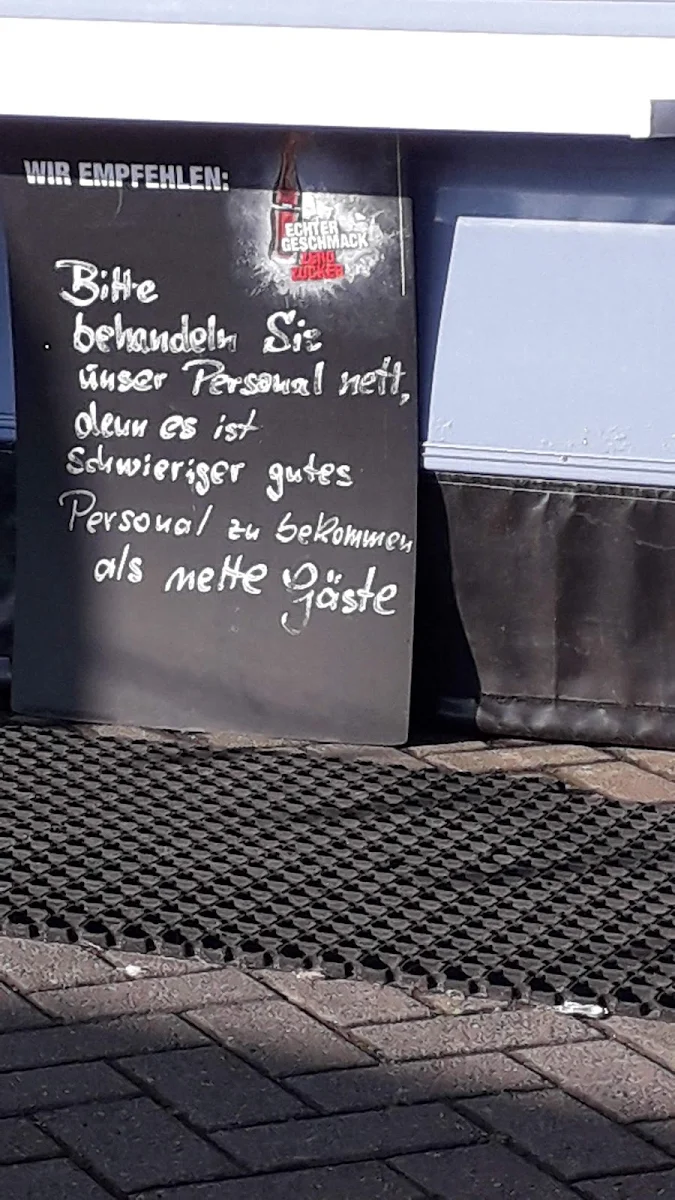 WIR EMPFEHLEN:
ECHTER
GESCHMACK
ZERO
ZUCKER
Bitte
behandeln Sie
unser Personal nett,
denn es ist
Schwieriger gutes
Personal zu bekommen
als nette Gäste